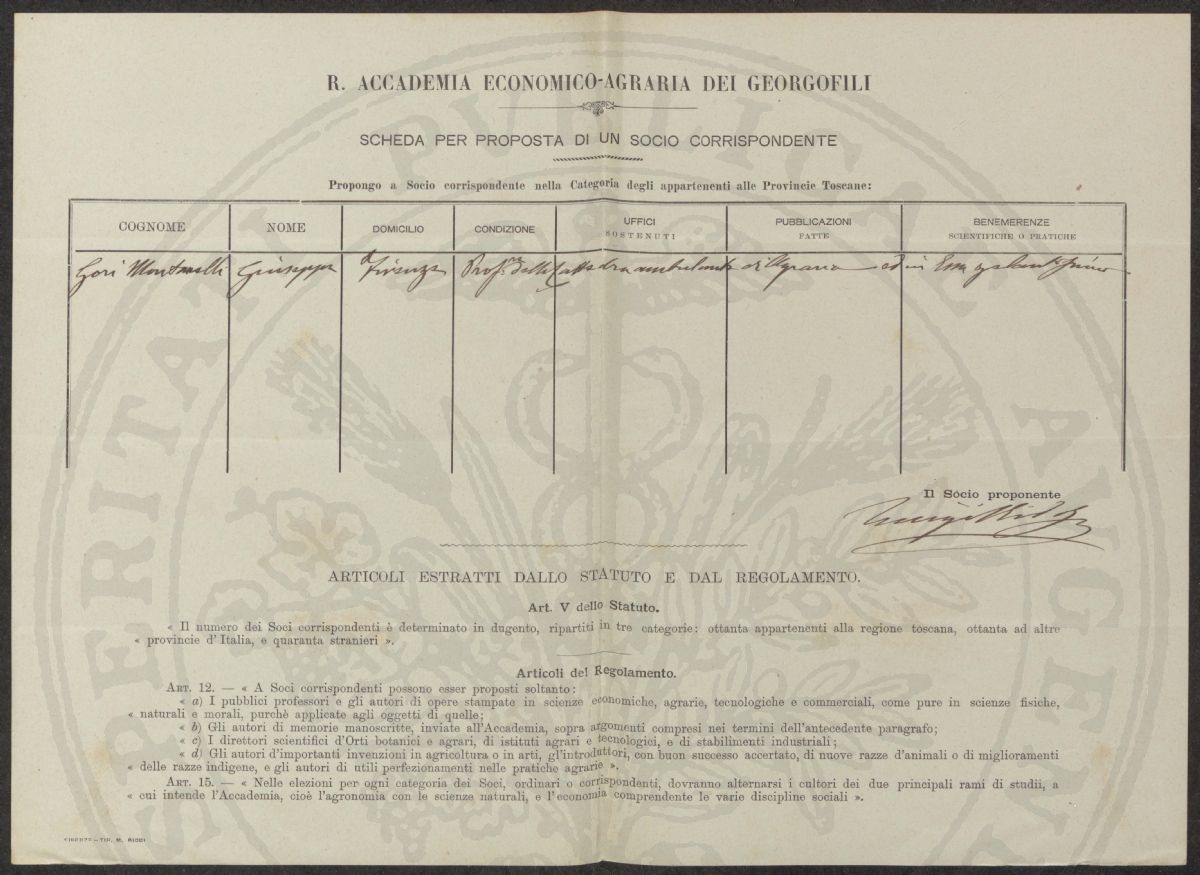 R. ACCADEMIA ECONOMICO-AGRARIA DEI GEORGOFILI
SCHEDA PER PROPOSTA DI UN SOCIO CORRISPONDENTE
Propongo a Socio corrispondente nella Categoria degli appartenenti alle Provincie Toscane:
COGNOME NOME DOMICILIO CONDIZIONE UFFICI SOSTENUTI PUBBLICAZIONI FATTE BENEMERENZE SCIENTIFICHE O PRATICHE
Gori Montanelli Giuseppe Firenze Prof. della Cattedra ambulante di Agraria ed in Essa
Il Socio proponente
ARTICOLI ESTRATTI DALLO STATUTO E DAL REGOLAMENTO.
Art. V dello Statuto.
« Il numero dei Soci corrispondenti è determinato in dugento, ripartiti in tre categorie: ottanta appartenenti alla regione toscana, ottanta ad altre
« provincie d'Italia, e quaranta stranieri ».
Articoli del Regolamento.
ART. 12. — « A Soci corrispondenti possono esser proposti soltanto:
« a) I pubblici professori e gli autori di opere stampate in scienze economiche, agrarie, tecnologiche e commerciali, come pure in scienze fisiche,
« naturali e morali, purchè applicate agli oggetti di quelle;
« b) Gli autori di memorie manoscritte, inviate all'Accademia, sopra argomenti compresi nei termini dell'antecedente paragrafo;
« c) I direttori scientifici d'Orti botanici e agrari, di istituti agrari e tecnologici, e di stabilimenti industriali;
« d) Gli autori d'importanti invenzioni in agricoltura o in arti, gl'introduttori, con buon successo accertato, di nuove razze d'animali o di miglioramenti
« delle razze indigene, e gli autori di utili perfezionamenti nelle pratiche agrarie ».
ART. 15. — « Nelle elezioni per ogni categoria dei Soci, ordinari o corrispondenti, dovranno alternarsi i cultori dei due principali rami di studii, a
« cui intende l'Accademia, cioè l'agronomia con le scienze naturali, e l'economia comprendente le varie discipline sociali ».
FIRENZE – TIP. M. RICCI